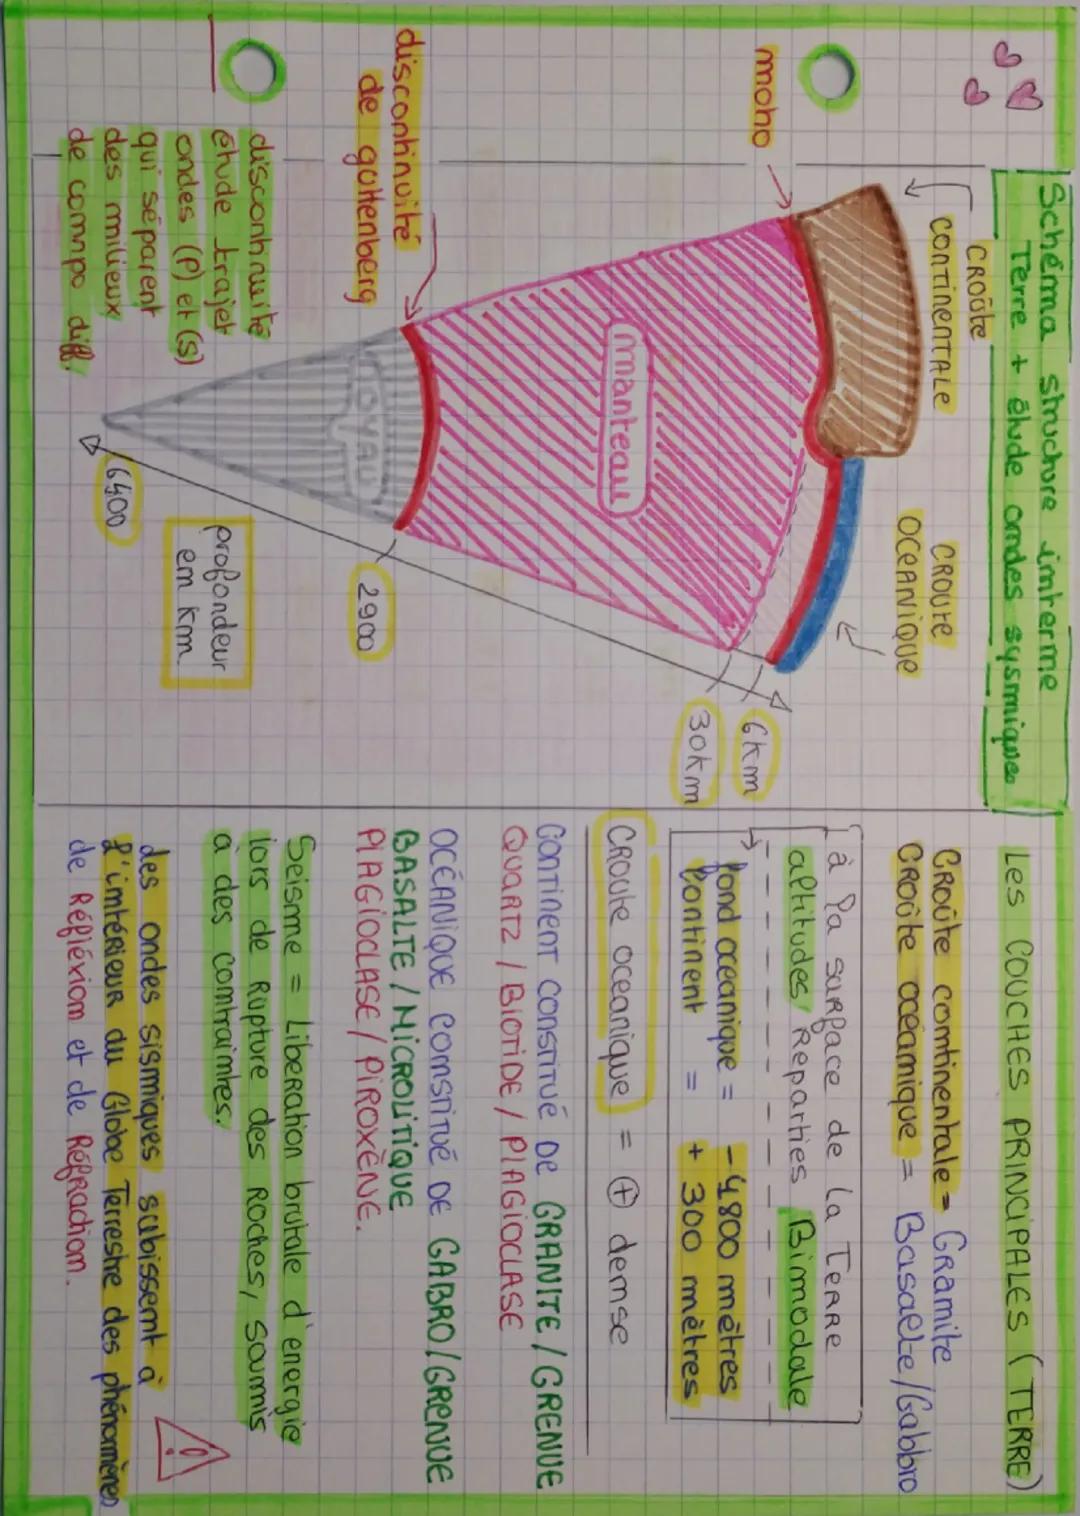 Schéma structure interme
Terre + étude ondes sysmiques
CROÛTE
CONTINENTALE
CROUTE
OCEANIQUE
moho
manteau
6km
30km
discontinuité
de guttenberg
NOYAU
2900
profondeur
em km
6400
discontinuité
étude trajet
ondes (P) et (S)
qui séparent
des milieux
de compo diff.
LES COUCHES PRINCIPALES (TERRE)
Croûte comtinentale = Gramite
CROÛTE océamique = Basalte/Gabbro
à la surface de La TERRE
altitudes/ Reparties Bimodale
fond océanique = -4800 mètres
Continent = + 300 mètres
CROUte oceanique = + demse
CONTINENT CONSTITUÉ DE GRANITE/GRENUE
QUARTZ / BIOTIDE / PLAGIOCLASE
OCÉANIQUE COMSTITUÉ DE GABRO/GRENUE
BASALTE / MICROLITIQUE
PLAGIOCLASE / PIROXÈNE.
Seisme = Liberation brutale d'energie
lors de RUpture des ROches, soumis
à des comtraimtes.
des ondes sismiques subissemt à
l'imtérieur du Globe Terrestre des phénomèmes
de Réfléxiom et de Réfractiom.
!